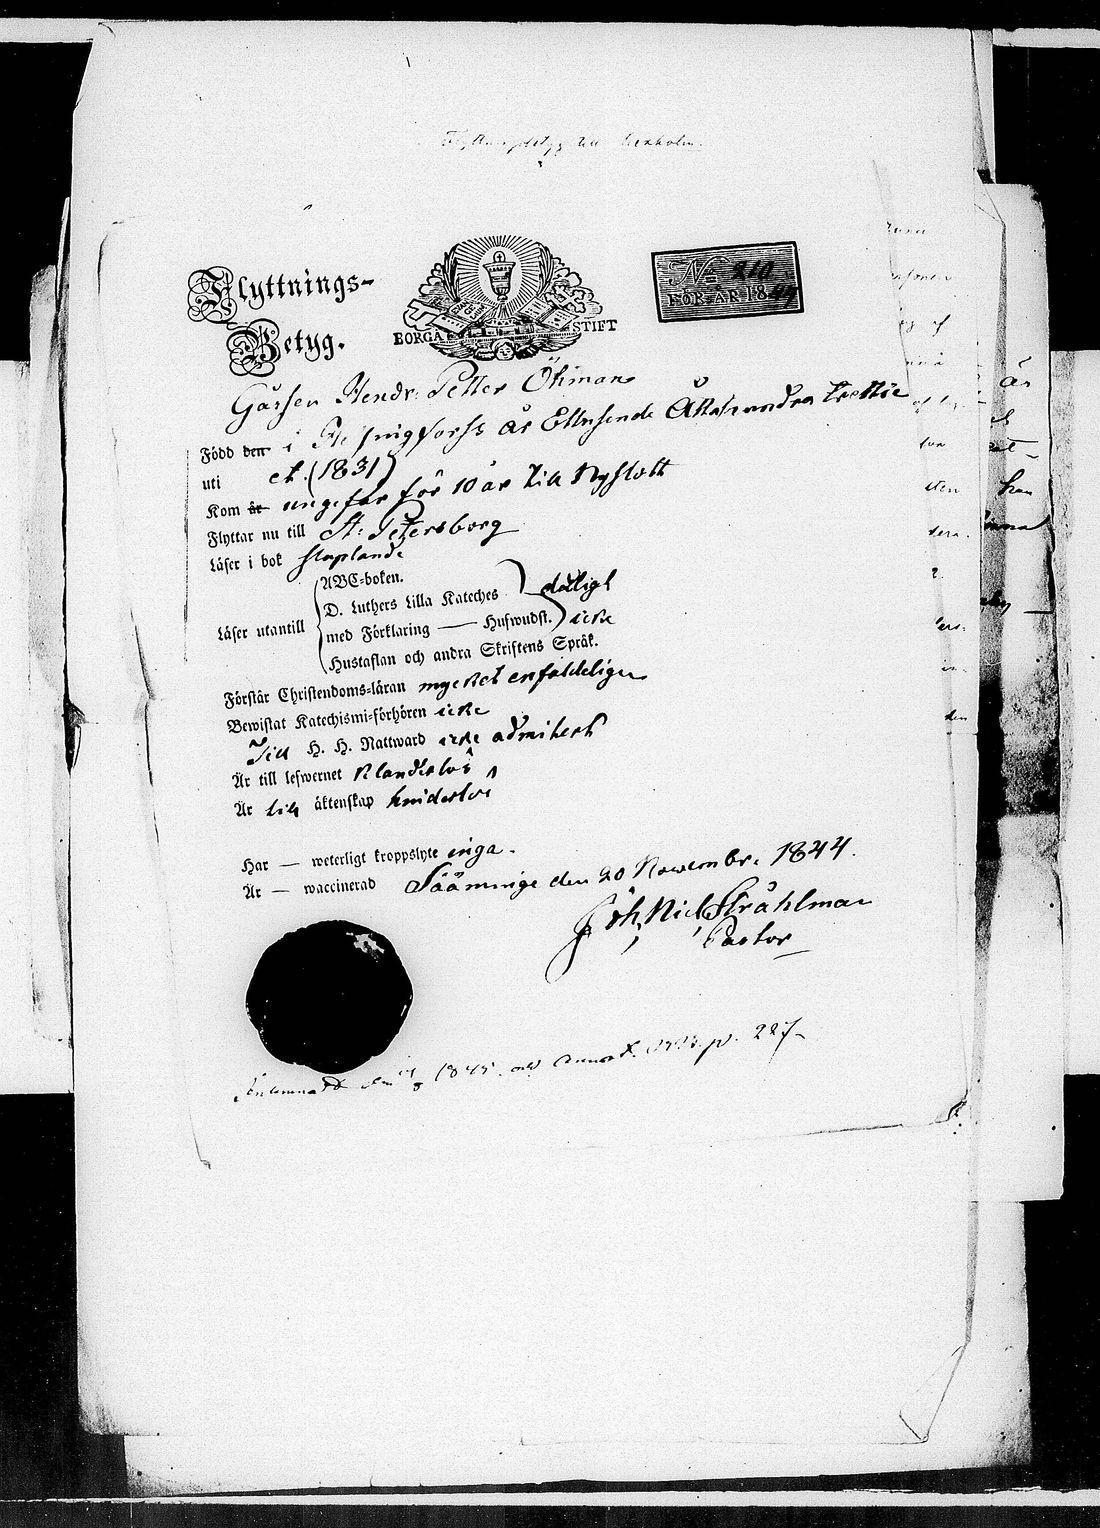 Flyttnings-
Betyg.
BORGÅ STIFT
No 210
FÖR ÅR 1844
Gåssen Hendr: Petter Öhman
Född den i Helsingforss år Ettusende Åttahundra trettie
uti et. (1831)
Kom år ungefär för 10 år till Nyslott
Flyttar nu till St: Petersborg
Läser i bok staplande
Läser utantill
ABC-boken.
D. Luthers Lilla Kateches dåligt
med Förklaring — Hufwudst. icke
Hustaflan och andra Skriftens Språk.
Förstår Christendoms-läran mycket enfaldeligen
Bewistat Katechismi-förhören icke
Till H. H. Nattward icke admitert
Är till lefwernet klanderlös
Är till äktenskap hinderlös
Har — weterligt kroppslyte inga.
Är — waccinerad Sääminge den 20 Novembr. 1844.
Joh, Nicl Stråhlman
Pastor
1845 p. 227